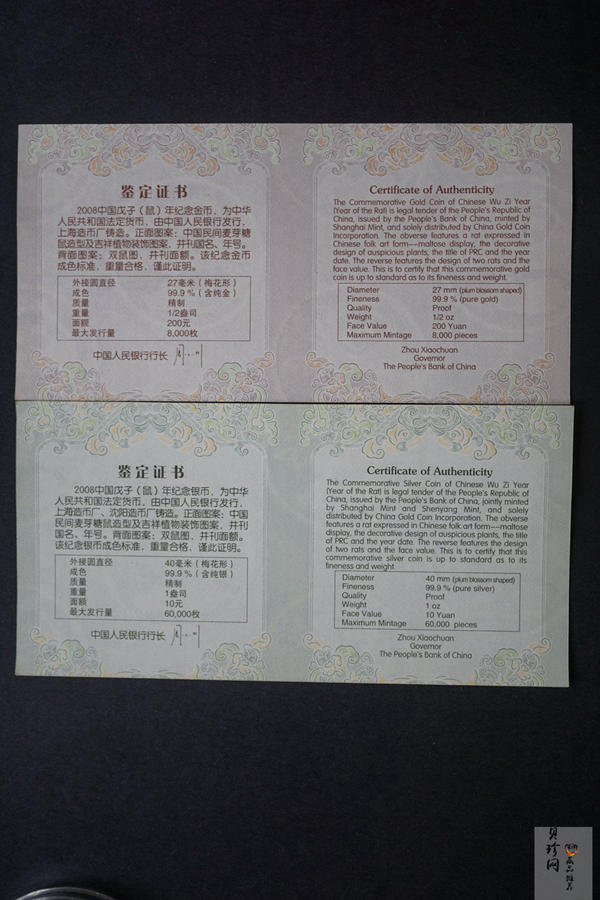 鉴定证书
2008中国戊子（鼠）年纪念金币，为中华
人民共和国法定货币，由中国人民银行发行，
上海造币厂铸造。正面图案：中国民间麦芽糖
鼠造型及吉祥植物装饰图案，并刊国名、年号。
背面图案：双鼠图，并刊面额。该纪念金币
成色标准，重量合格，谨此证明。
外接圆直径 27毫米（梅花形）
成色 99.9％（含纯金）
质量 精制
重量 1/2盎司
面额 200元
最大发行量 8,000枚
中国人民银行行长
Certificate of Authenticity
The Commemorative Gold Coin of Chinese Wu Zi Year
(Year of the Rat) is legal tender of the People's Republic of
China, issued by the People's Bank of China, minted by
Shanghai Mint, and solely distributed by China Gold Coin
Incorporation. The obverse features a rat expressed in
Chinese folk art form----maltose display, the decorative
design of auspicious plants, the title of PRC and the year
date. The reverse features the design of two rats and the
face value. This is to certify that this commemorative gold
coin is up to standard as to its fineness and weight.
Diameter 27 mm (plum blossom shaped)
Fineness 99.9 % (pure gold)
Quality Proof
Weight 1/2 oz
Face Value 200 Yuan
Maximum Mintage 8,000 pieces
Zhou Xiaochuan
Governor
The People's Bank of China
鉴定证书
2008中国戊子（鼠）年纪念银币，为中华
人民共和国法定货币，由中国人民银行发行，
上海造币厂、沈阳造币厂铸造。正面图案：中国
民间麦芽糖鼠造型及吉祥植物装饰图案，并刊
国名、年号。背面图案：双鼠图，并刊面额。
该纪念银币成色标准，重量合格，谨此证明。
外接圆直径 40毫米（梅花形）
成色 99.9％（含纯银）
质量 精制
重量 1盎司
面额 10元
最大发行量 60,000枚
中国人民银行行长
Certificate of Authenticity
The Commemorative Silver Coin of Chinese Wu Zi Year
(Year of the Rat) is legal tender of the People's Republic of
China, issued by the People's Bank of China, jointly minted
by Shanghai Mint and Shenyang Mint, and solely
distributed by China Gold Coin Incorporation. The obverse
features a rat expressed in Chinese folk art form----maltose
display, the decorative design of auspicious plants, the title
of PRC and the year date. The reverse features the design
of two rats and the face value. This is to certify that this
commemorative silver coin is up to standard as to its
fineness and weight.
Diameter 40 mm (plum blossom shaped)
Fineness 99.9 % (pure silver)
Quality Proof
Weight 1 oz
Face Value 10 Yuan
Maximum Mintage 60,000 pieces
Zhou Xiaochuan
Governor
The People's Bank of China
贝珍网